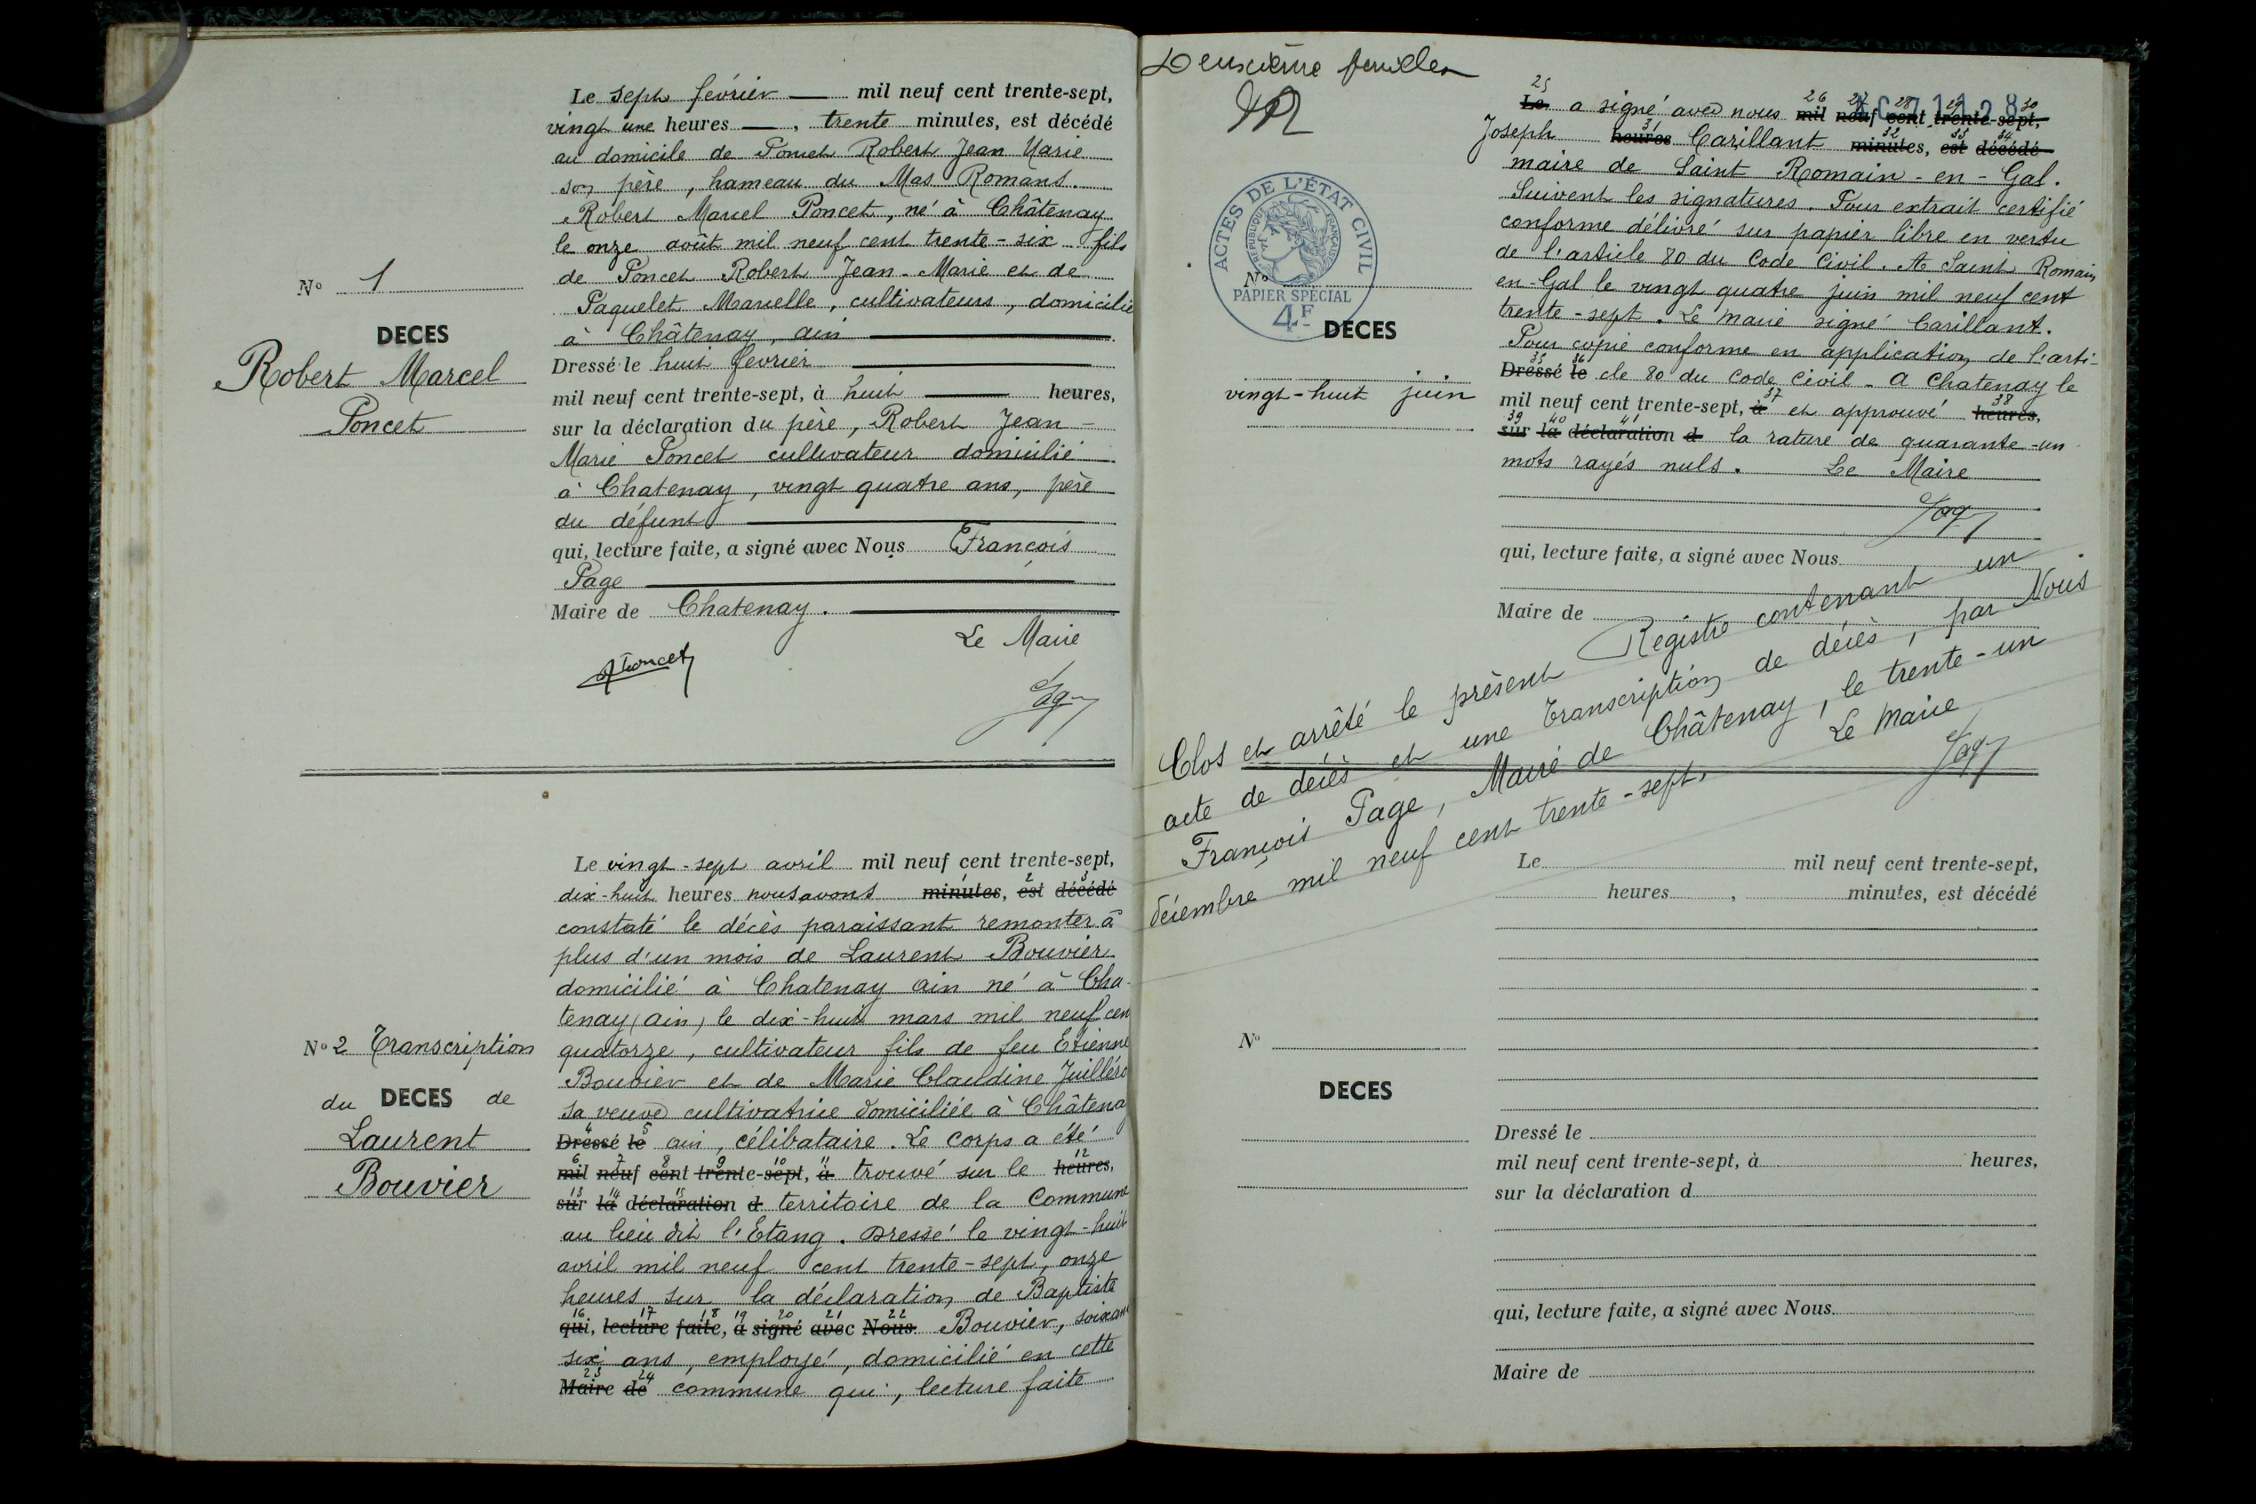 N° 1
DECES
Robert Marcel
Poncet
Le sept février mil neuf cent trente-sept,
vingt une heures, trente minutes, est décédé
au domicile de Poncet Robert Jean Marie
son père, hameau du Mas Romans.
Robert Marcel Poncet, né à Châtenay
le onze août mil neuf cent trente-six fils
de Poncet Robert Jean-Marie et de
Paquelet Marcelle, cultivateurs, domicilié
à Châtenay, ain
Dressé le huit fevrier
mil neuf cent trente-sept, à huit heures,
sur la déclaration du père, Robert Jean-
Marie Poncet cultivateur domicilié
à Chatenay, vingt quatre ans, père
du défunt
qui, lecture faite, a signé avec Nous François
Page
Maire de Chatenay.
Le Maire
RPoncet
Page
N° 2 Transcription
du DECES de
Laurent
Bouvier
Le vingt-sept avril mil neuf cent trente-sept,
1 2 3
dix-huit heures nous avons minutes, est décédé
constaté le décès paraissant remonter à
plus d'un mois de Laurent Bouvier
domicilié à Chatenay ain né à Cha-
tenay (ain) le dix-huit mars mil neuf cen
quatorze, cultivateur fils de feu Etienne
Bouvier et de Marie Claudine Juilléro
sa veuve cultivatrice domiciliée à Châtenay
4 5
Dressé le ain, célibataire. Le corps a été
6 7 8 9 10 11 12
mil neuf cent trente-sept, à trouvé sur le heures,
13 14 15
sur la déclaration d territoire de la Commune
au lieu dit l'Etang. Dressé le vingt-huit
avril mil neuf cent trente-sept, onze
heures sur la déclaration de Baptiste
16 17 18 19 20 21 22
qui, lecture faite, a signé avec Nous Bouvier, soixan
six ans, employé, domicilié en cette
23 24
Maire de commune qui, lecture faite
Deuxième feuillet
ACTES DE L'ÉTAT CIVIL
RÉPUBLIQUE FRANÇAISE
PAPIER SPÉCIAL
4F
N°
DECES
vingt-huit juin
25 26 27 28 29 30
Le a signé avec nous mil neuf cent trente-sept,
31 32 33 34
Joseph heures Carillant minutes, est décédé
maire de Saint Romain-en-Gal.
Suivent les signatures. Pour extrait certifié
conforme délivré sur papier libre en vertu
de l'article 80 du Code Civil. A Saint Romain
en-Gal le vingt quatre juin mil neuf cent
trente-sept. Le maire signé Carillant.
Pour copie conforme en application de l'arti-
35 36
Dressé le cle 80 du Code Civil. A Chatenay le
37 38
mil neuf cent trente-sept, à et approuvé heures,
39 40 41
sur la déclaration d la rature de quarante-un
mots rayés nuls. Le Maire
Page
qui, lecture faite, a signé avec Nous
Maire de
Clos et arrêté le présent Registre contenant un
acte de décès et une transcription de décès, par Nous
François Page, Maire de Châtenay, le trente-un
décembre mil neuf cent trente-sept. Le Maire
Page
N°
DECES
Le mil neuf cent trente-sept,
heures, minutes, est décédé
Dressé le
mil neuf cent trente-sept, à heures,
sur la déclaration d
qui, lecture faite, a signé avec Nous
Maire de